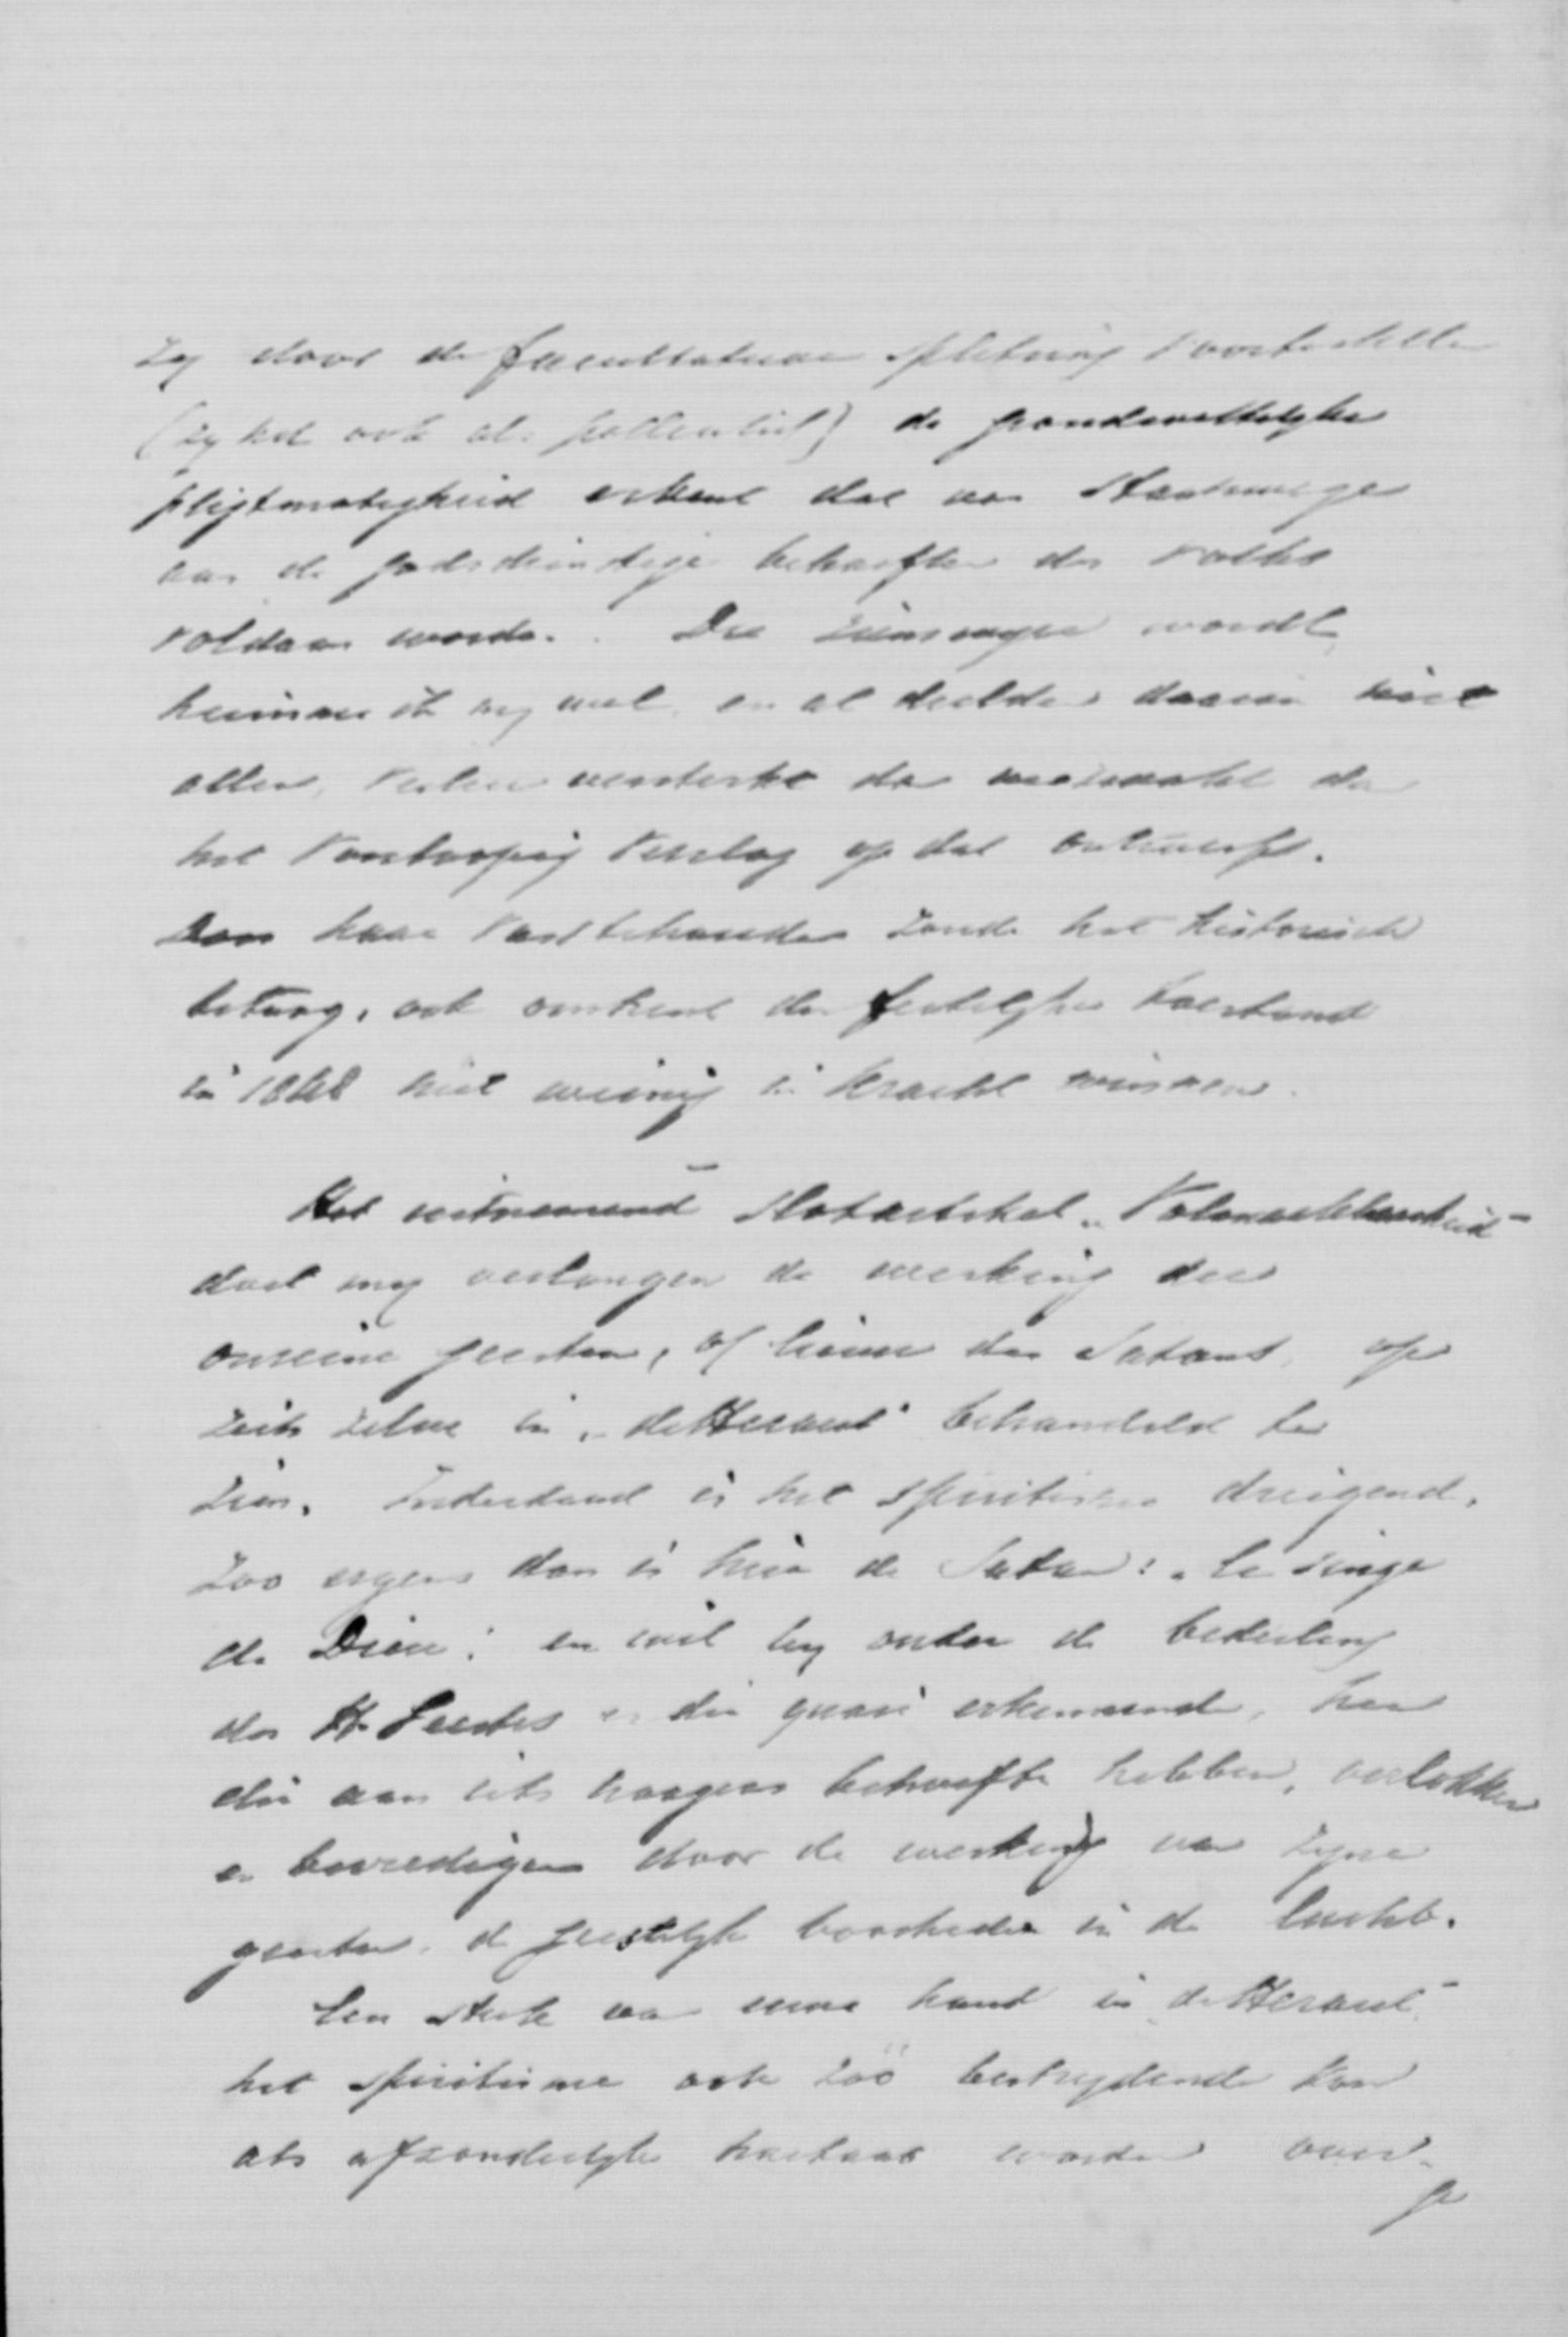 zy door de facultatieve splitsing voortestellen
(zy het ook als palliatief) de grondwettelyke
pligtmatigheid erkent dat van Staatswege
aan de godsdienstige behoeften des volks
voldaan worde. Die zienswyze wordt,
herinner ik my wel, en al deelden daarin niet
allen, zeer versterkt door
het Voorloopig Verslag op dat ontwerp.
haar vasthoudende zoude het historisch
betoog, ook omtrent den feitelyken toestand
in 1848 niet weinig in kracht winnen.
Het uitnemend slotartikel „Volmaakbaarheid"
doet my verlangen de werking der
onreine geesten, of liever des Satans, op
zich zelve in „de Heraut" behandeld te
zien. Inderdaad is het spiritisme dreigend.
Zoo ergens dan is hier de Satan: „le singe
de Dieu": en wil hy onder de bedeeling
des H. Geestes en die quasi erkennend, hen
die aan iets hoogers behoefte hebben, verlokken
en bevredigen door de werking van zyne
geesten, de geestelyke boosheden in de lucht.
Een stuk van uwe hand in „de Heraut"
het spiritisme ook zoo bestrydende kon
als afzonderlyk worden over-
ge